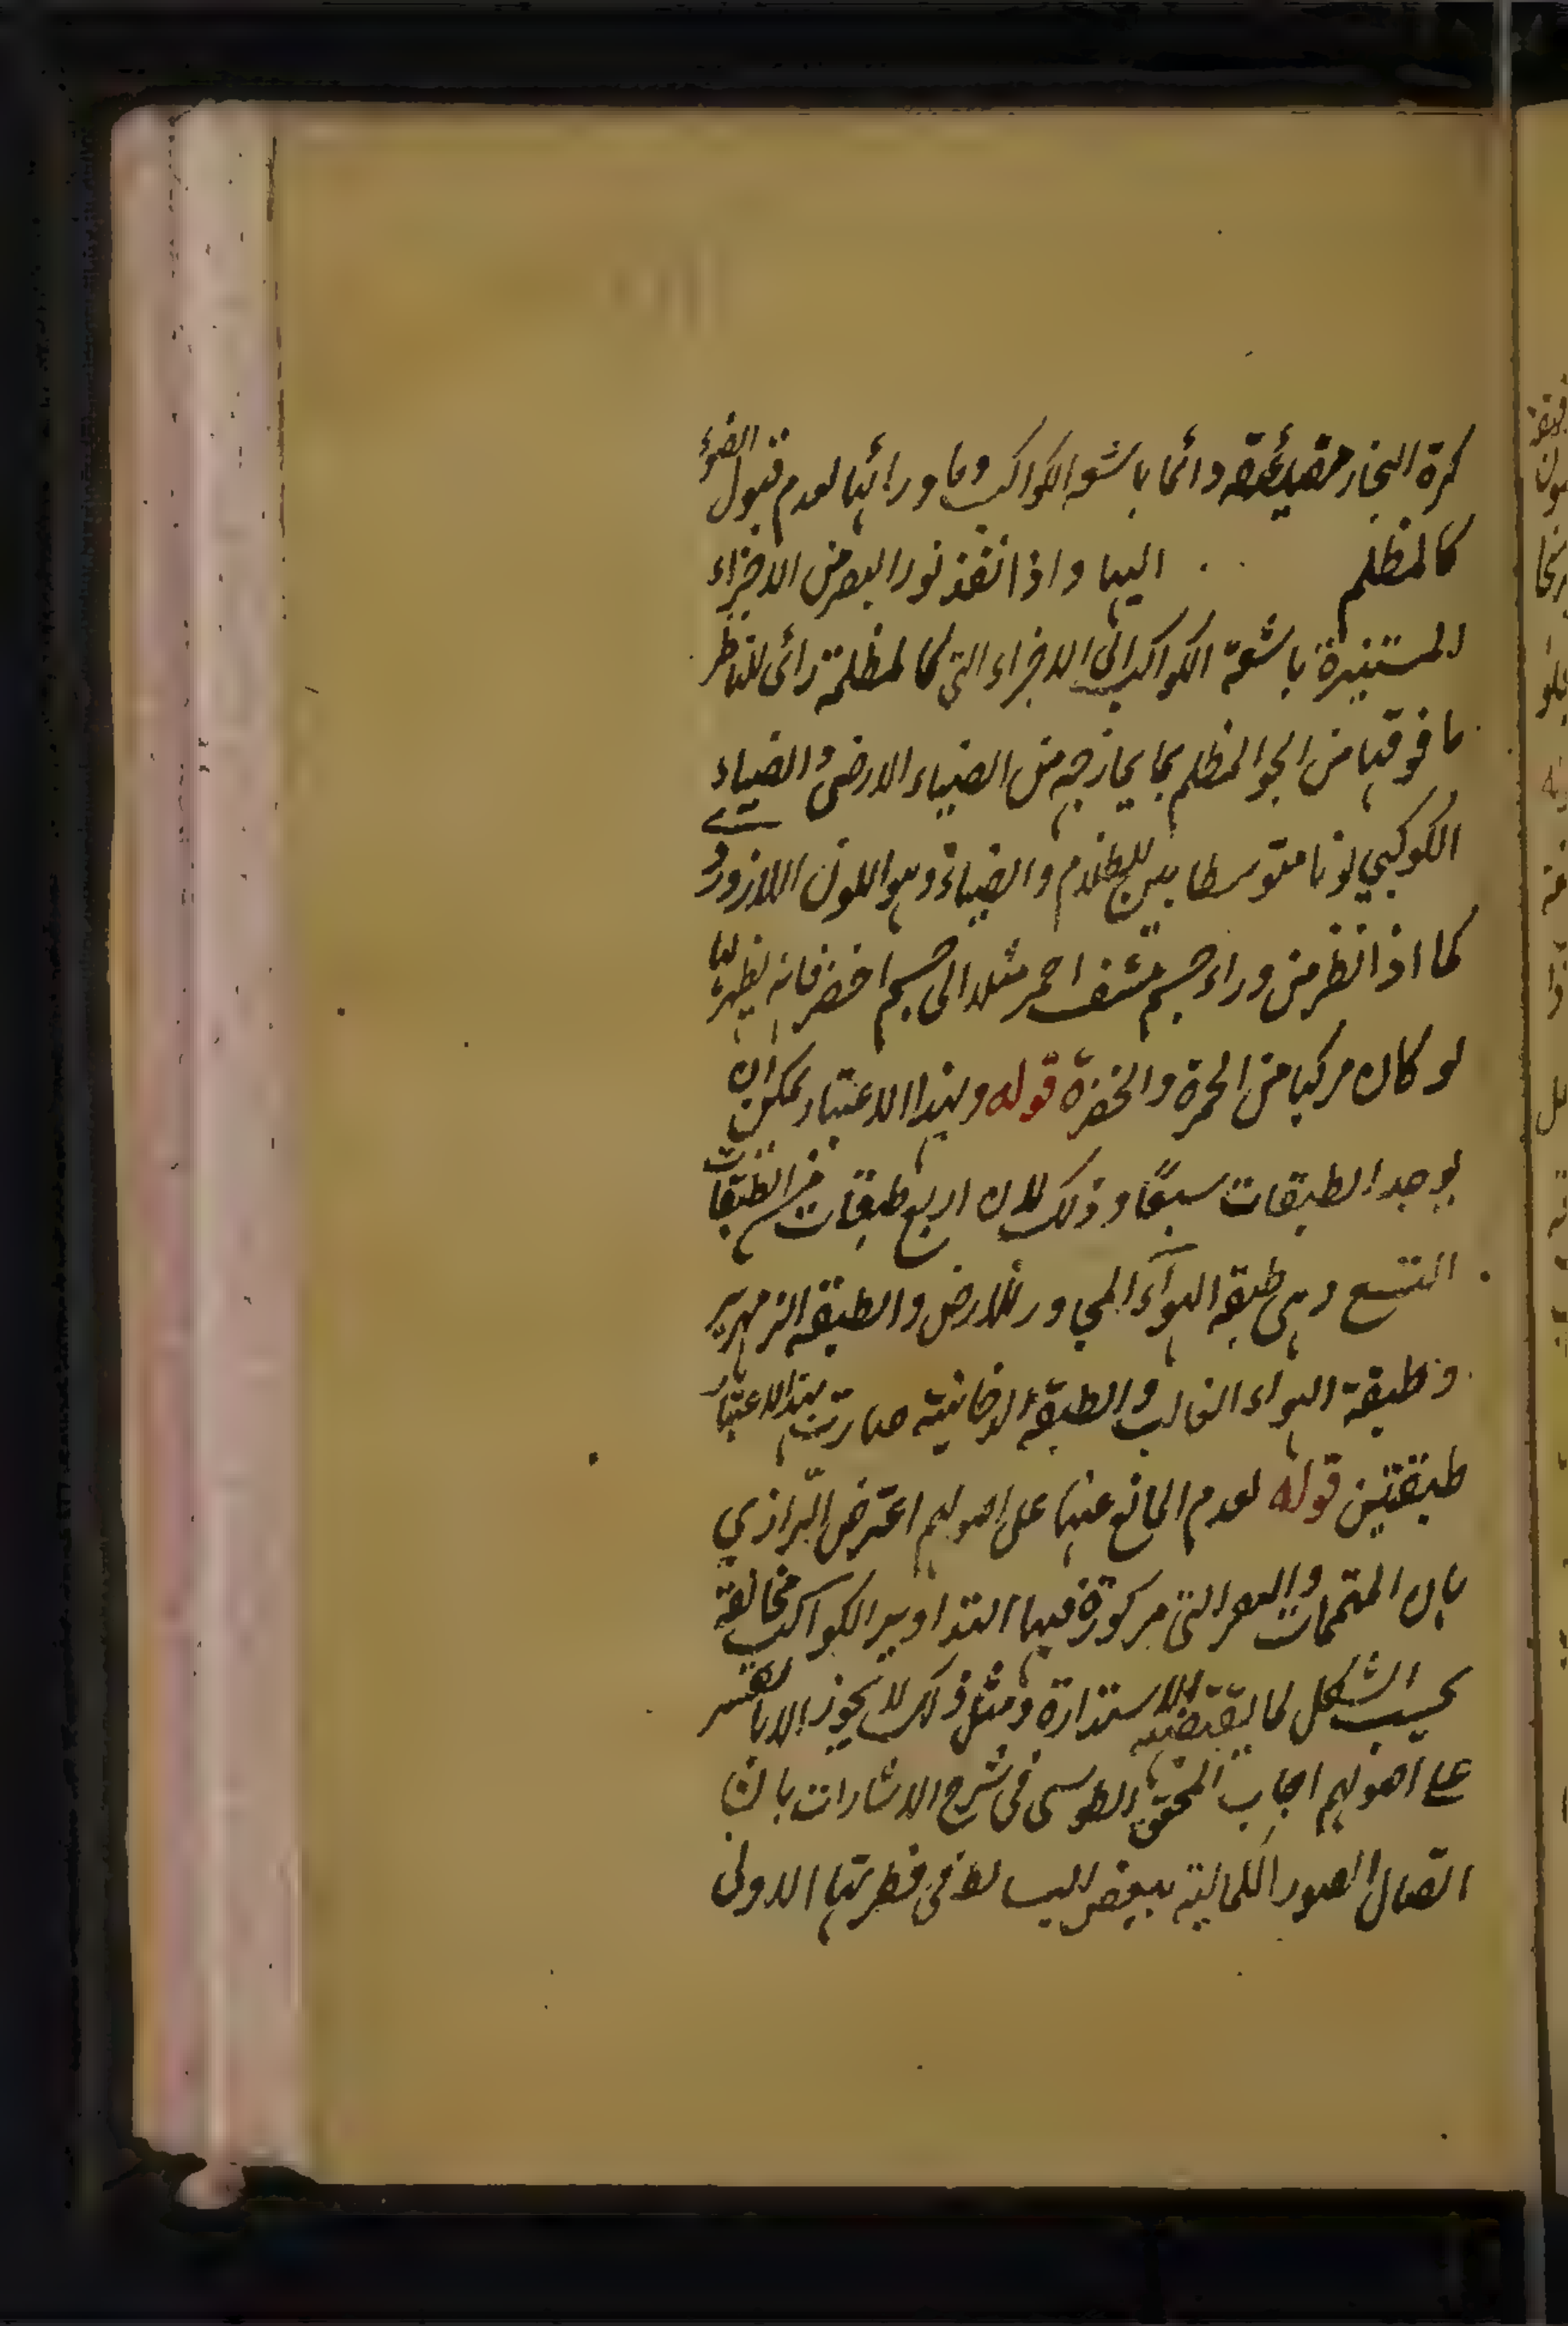 كرة البخار مضيئة دائما باشعة الكواكب وما ورائها لعدم قبول الضوء
كالمظلم اليها واذا نفذ نور البصر من الاجزاء
المستنيرة باشعة الكواكب الى الاجزاء التي كالمظلمة رأى الناظر
ما فوقها من الجو المظلم بما يمازجه من الضياء الارضى والضياء
الكوكبي لونا متوسطا بين الظلام والضياء وهو اللون اللازورد
كما اذا نظر من وراء جسم مشف احمر مثلا الى جسم اخضر فانه يظهر لنا
لو كان مركبا من الحمرة والخضرة قوله وبهذا الاعتبار يمكن ان
يوجد الطبقات سبعًا وذلك لان اربع طبقات من الطبقات
التسع وهى طبقة الهواء المجاور للارض والطبقة الزمهرير
وطبقة الهواء الغالب والطبقة الدخانية صارت بهذا الاعتبار
طبقتين قوله لعدم المانع عنها على اصولهم اعترض الرازي
بان المتممات والتى مركوزة فيها التداوير الكواكب مخالفة
بحسب الشكل لما يقتضيه الاستدارة ومثل ذلك لا يجوز الا بالقسر
على اصولهم اجاب المحقق الطوسى فى شرح الاشارات بان
اتصال الصور الكمالية ببعض البسائط فى فطرتها الاولى